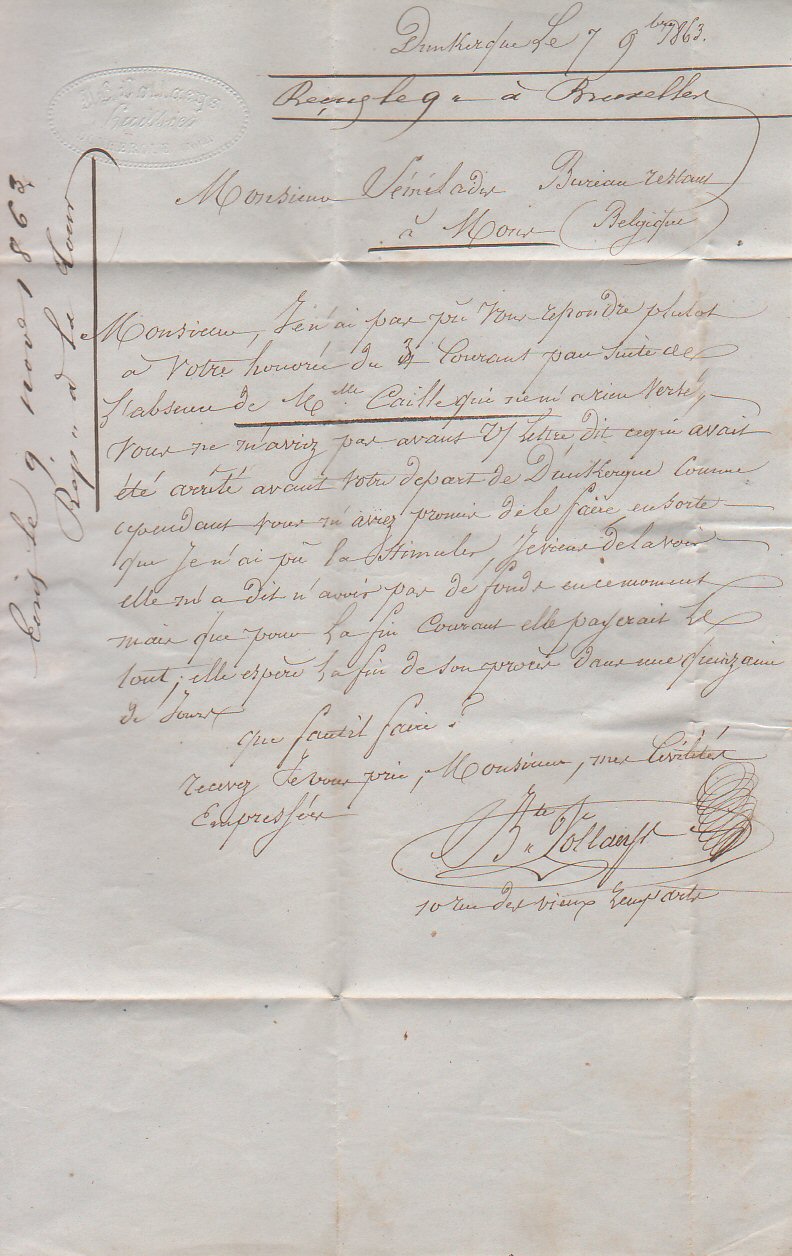 Dunkerque Le 7 9bre 1863.
Reçu le 9 " à Bruxelles
Monsieur Bureau restant
à Mons (Belgique
Monsieur, Je n'ai pas pû vous répondre plutot
à Votre honorée du 3 Courant par suite de
l'absence de Melle Caille qui ne m'a rien versé,
vous ne m'aviez pas avant Vs lettre, dit ce qui avait
été arrêté avant votre départ de Dunkerque Comme
cependant vous m'aviez promis de le faire en sorte
que Je n'ai pû la Stimuler, Je viens de la voir
elle m'a dit n'avoir pas de fonds en ce moment
mais que pour La fin Courant elle payerait Le
tout; elle espère La fin de son procès dans une quinzaine
de Jours
que faut il faire ?
recevez Je vous prie, Monsieur, mes Civilités
Empressées
Bte Vollaeys
10 rue des vieux remparts
Ecris le 9 nov 1863
Rép " à la Cour
Vollaeys
Huissier